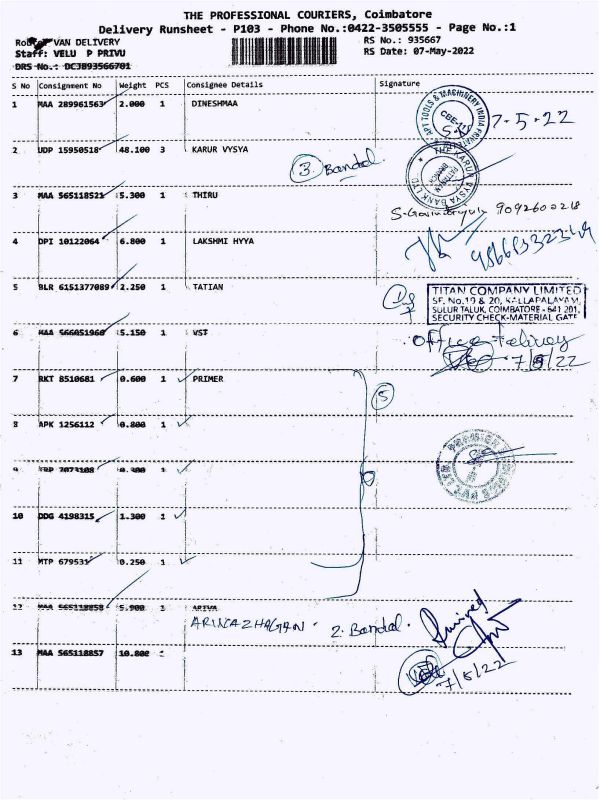 THE PROFESSIONAL COURIERS, Coimbatore
Delivery Runsheet - P103 - Phone No.:0422-3505555 - Page No.:1
VAN DELIVERY
Staff: VELU P PRIVU
DRS No.: DCJB93566701
RS No.: 935667
RS Date: 07-May-2022
S No Consignment No Weight PCS Consignee Details Signature
1 MAA 289961563 2.000 1 DINESHMAA
7-5-22
2 UDP 15950518 48.100 3 KARUR VYSYA
3 Bandal
3 MAA 565118521 5.300 1 THIRU
9092600218
4 DPI 10122064 6.800 1 LAKSHMI HYYA
5 BLR 6151377089 2.250 1 TATIAN
TITAN COMPANY LIMITED
SF. No,19 & 20, KALLAPALAYAM,
SULUR TALUK, COIMBATORE - 641 201.
SECURITY CHECK-MATERIAL GATE
6 MAA 566051960 5.150 1 VST
office
7/5/22
7 RKT 8510681 0.600 1 PRIMER
5
8 APK 1256112 0.800 1
9 7073108 1
10 DDG 4198315 1.300 1
11 MTP 679531 0.250 1
12 MAA 565118858 5.900 1 ARIVA
2. Bandal.
13 MAA 565118857 10.800
7/5/22